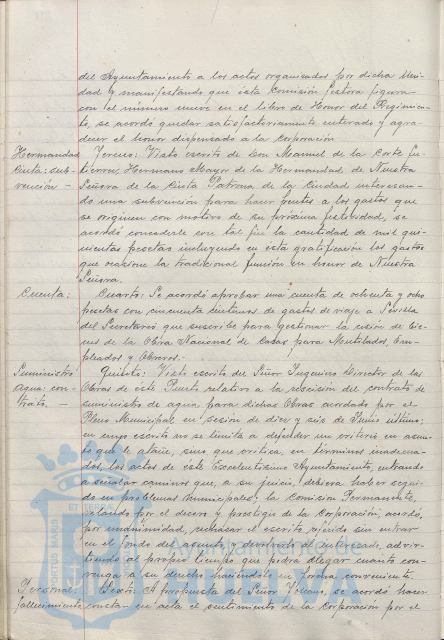 del Ayuntamiento a los actos organizados por dicha Uni-
dad y manifestando que esta Comisión Gestora figura
con el número nueve en el libro de Honor del Regimien-
to, se acordó quedar satisfactoriamente enterado y agra-
decer el honor dispensado a la Corporación
Hermandad Tercero: Visto escrito de Don Manuel de la Corte Gu-
Cinta: sub- tierrez, Hermano Mayor de la Hermandad de Nuestra
vención – Señora de la Cinta Patrona de la Ciudad interesan-
do una subvención para hacer frente a los gastos que
se originen con motivo de su próxima festividad, se
acordó concederle con tal fin la cantidad de mil qui-
nientas pesetas incluyendo en esta gratificación los gastos
que ocasione la tradicional función en honor de Nuestra
Señora.
Cuenta: Cuarto: Se acordó aprobar una cuenta de ochenta y ocho
pesetas con cincuenta céntimos de gastos de viaje a Sevilla
del Secretario que suscribe para gestionar la cesión de bie-
nes de la Obra Nacional de Casas para Mutilados, Em-
pleados y Obreros.
Suministro Quinto: Visto escrito del Señor Ingeniero Director de las
Agua: con- Obras de este Puerto relativo a la rescisión del contrato de
trato. – suministro de agua para dichas Obras acordado por el
Pleno Municipal en sesión de diez y seis de Junio último;
en cuyo escrito no se limita a defender un criterio en asun-
to que le atañe, sino que critica, en términos inadecua-
dos, los actos de este Excelentísimo Ayuntamiento, entrando
a señalar caminos que, a su juicio, debiera haber segui-
do en problemas municipales; la Comisión Permanente,
velando por el decoro y prestigio de la Corporación, acordó,
por unanimidad, rechazar el escrito referido sin entrar
en el fondo del asunto y devolverlo al interesado, advir-
tiendo al propio tiempo que podrá alegar cuanto con-
venga a su derecho haciéndolo en forma conveniente.
Personal: Sexto: A propuesta del Señor Vizcaino, se acordó hacer
fallecimiento constar en acta el sentimiento de la Corporación por el
Ayuntamiento de